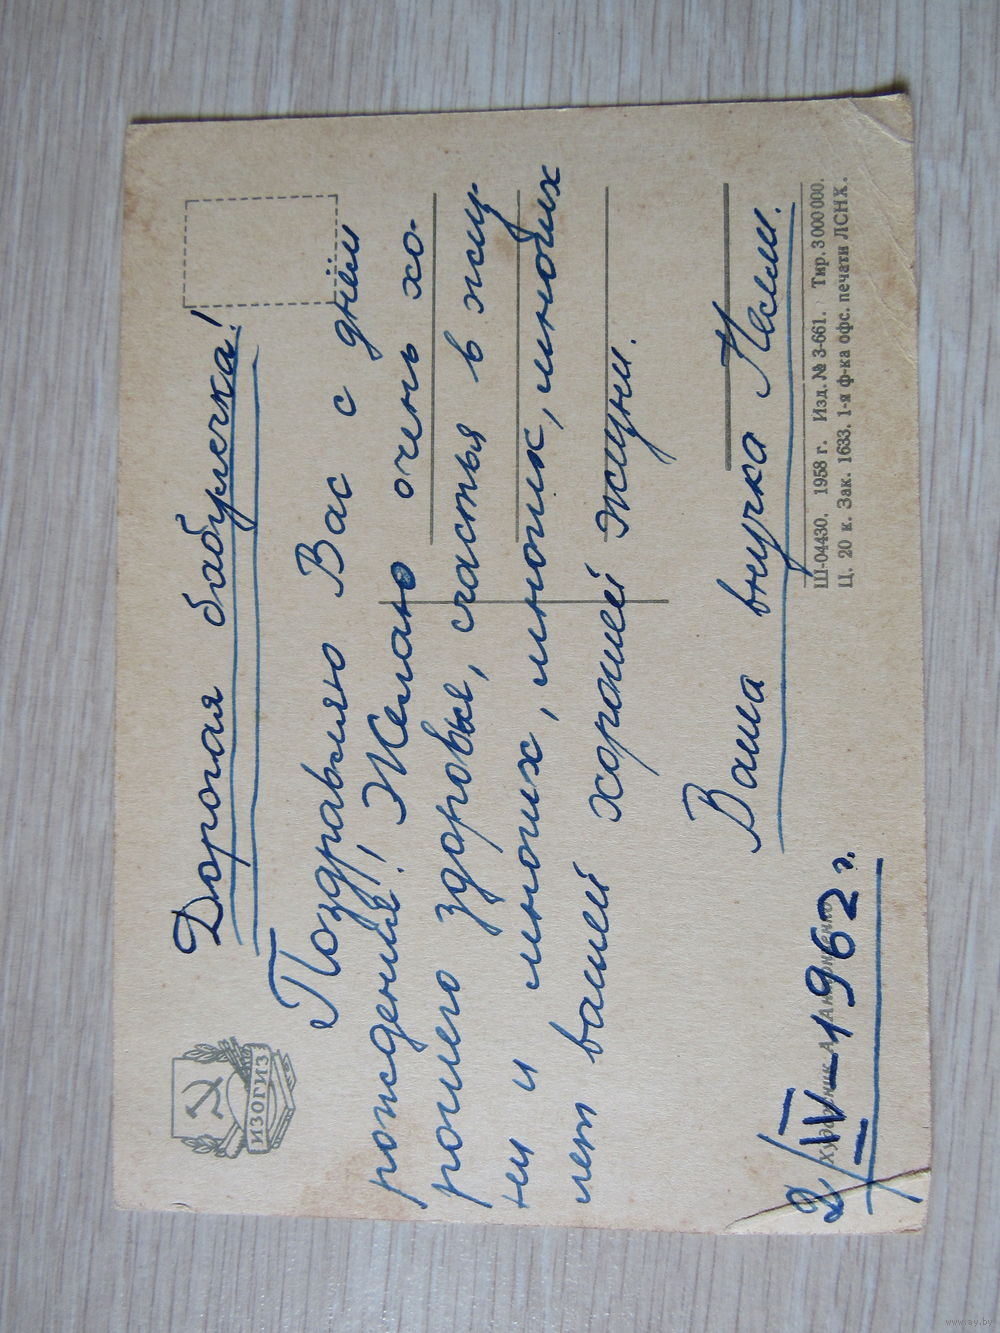 Дорогая бабулечка!
Поздравляю Вас с днём
рождения! Желаю очень хо-
рошего здоровья, счастья в жиз-
ни и многих, многих, многих
лет вашей хорошей жизни.
Ваша внучка
2/IV-1962 г.
ИЗОГИЗ
Художник А.
Ш-04430. 1958 г. Изд. № 3-661. Тир. 3 000 000.
Ц. 20 к. Зак. 1633. 1-я ф-ка офс. печати ЛСНХ.
www.ay.by